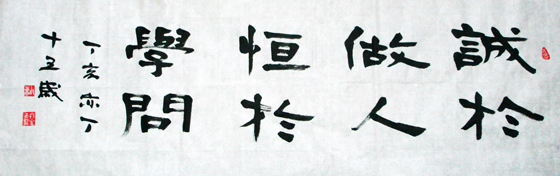 誠於
做人
恒於
學問
丁亥亦丁
十五歲